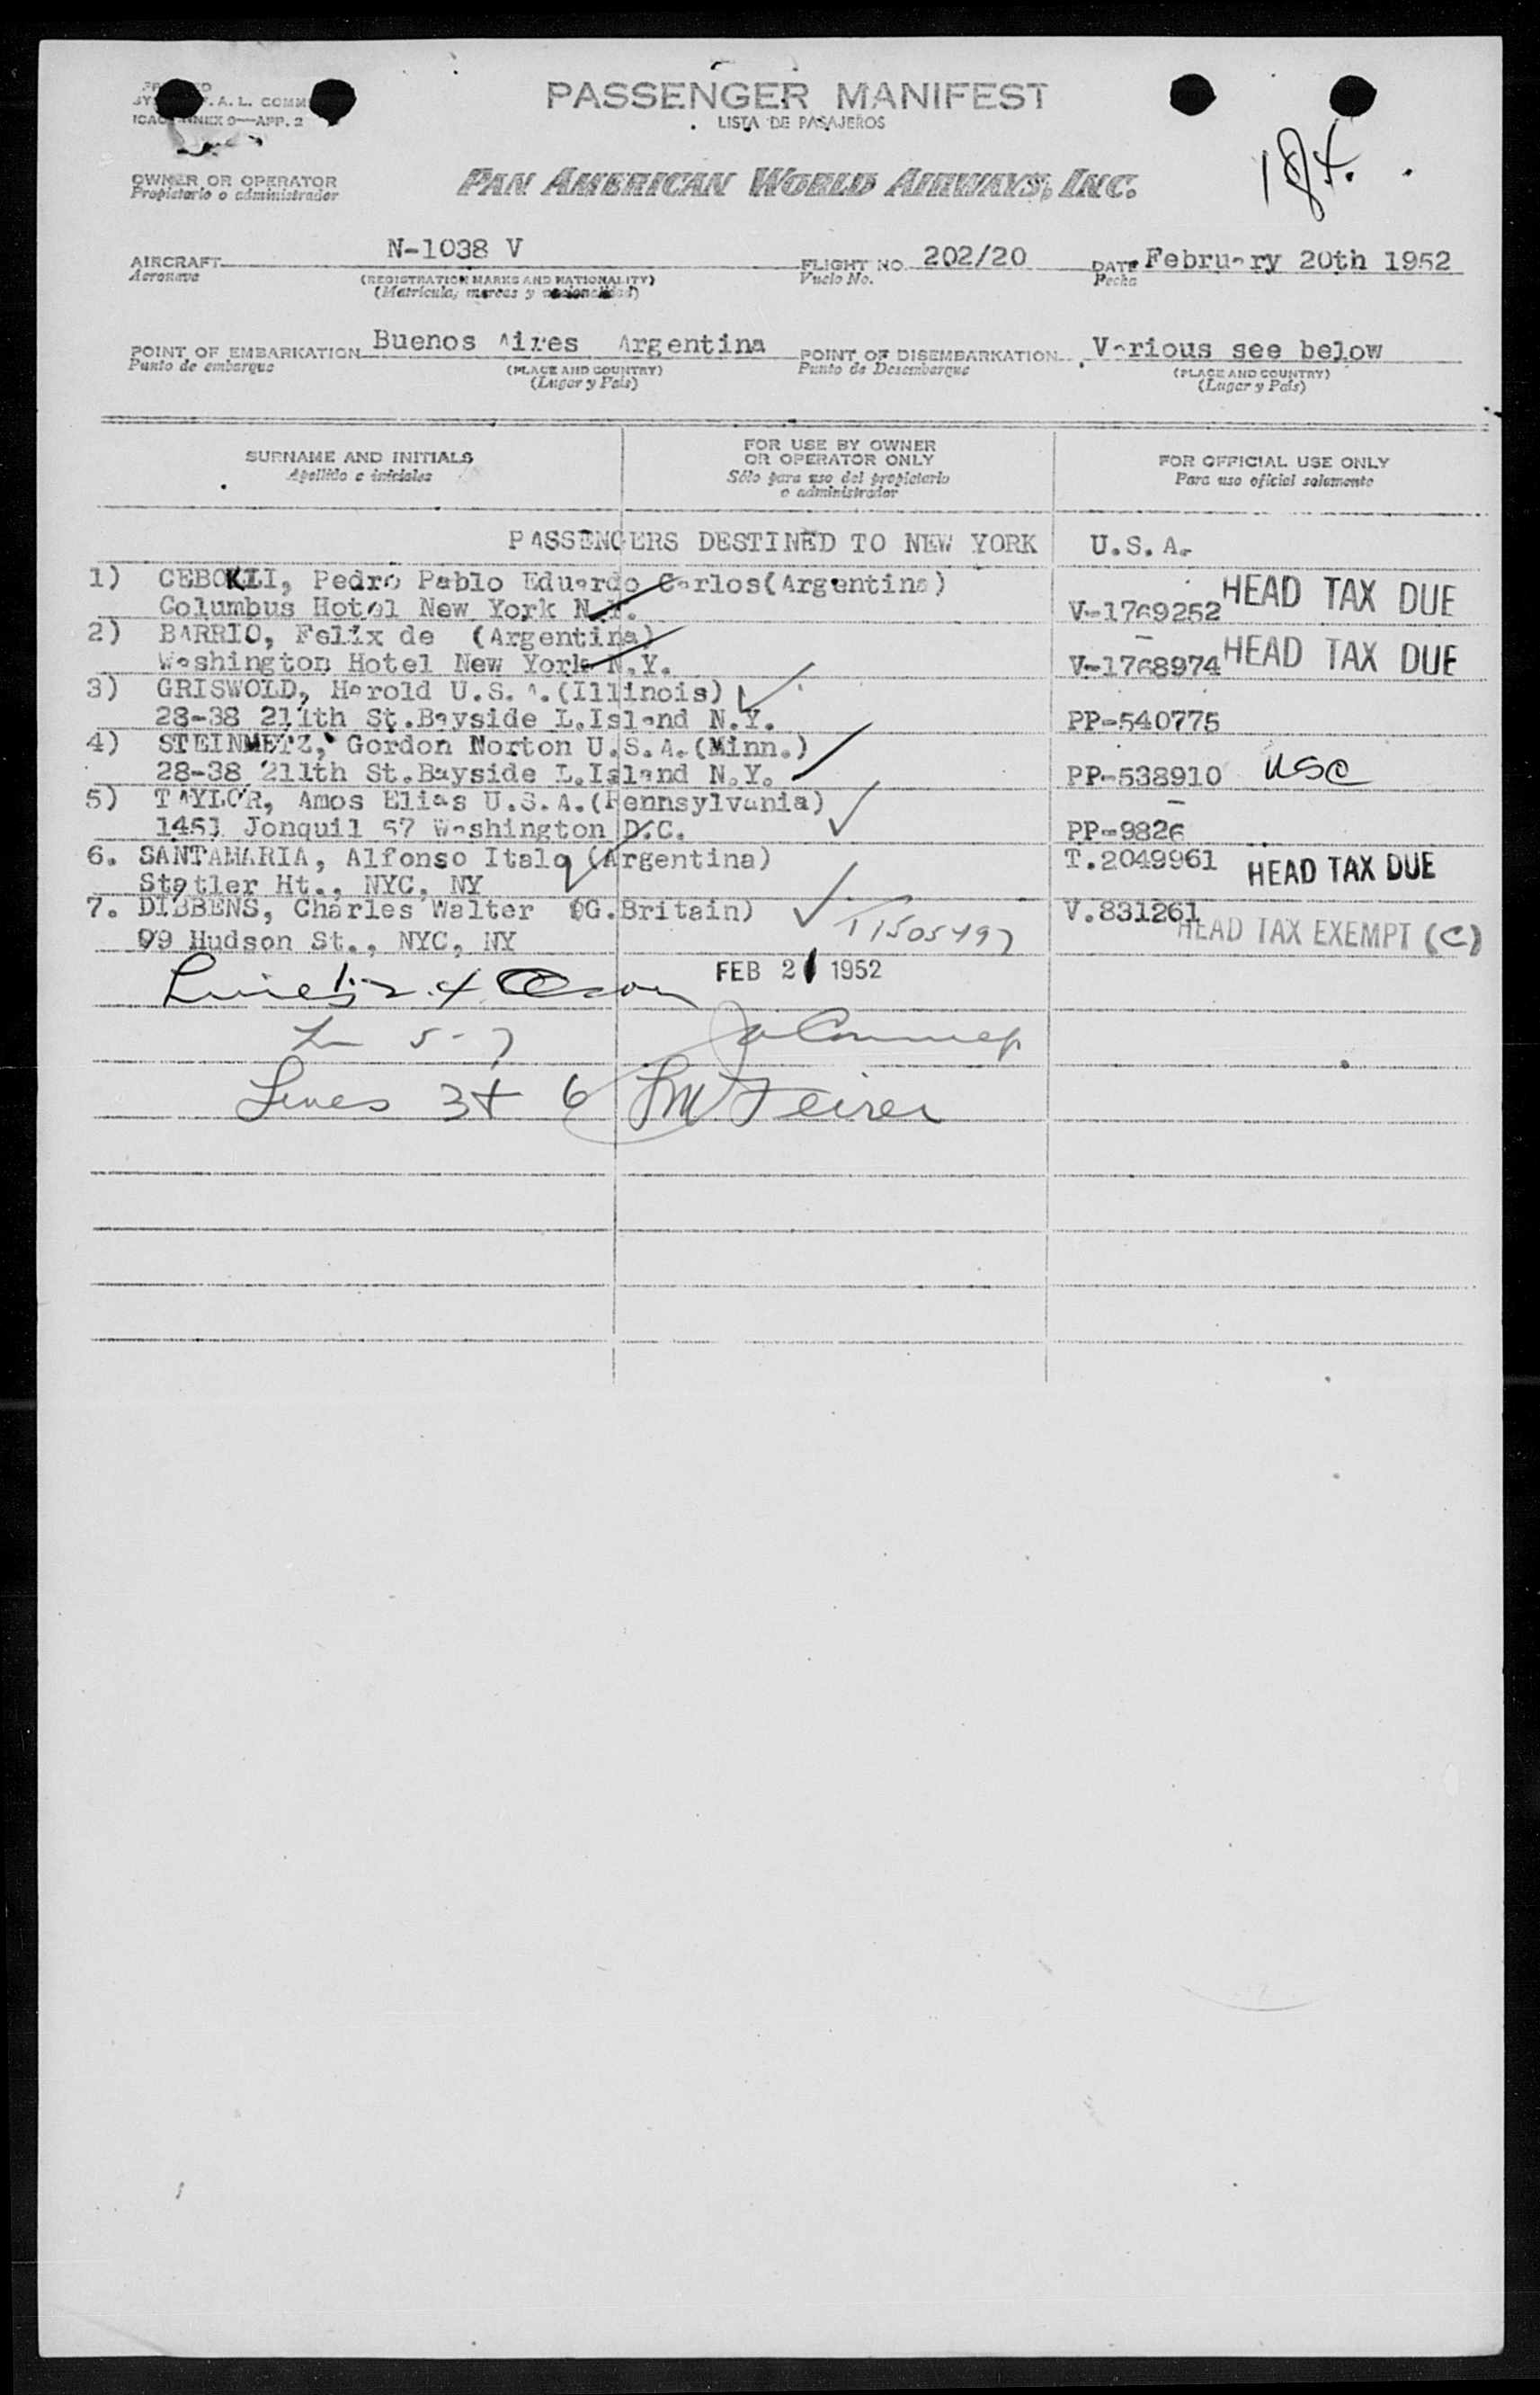 A. L. COMM
ICAO ANNEX 9—APP. 2
PASSENGER MANIFEST
LISTA DE PASAJEROS
OWNER OR OPERATOR
Propietario o administrador
PAN AMERICAN WORLD AIRWAYS, INC.
AIRCRAFT N-1038 V FLIGHT NO. 202/20 DATE February 20th 1952
Aeronave (REGISTRATION MARKS AND NATIONALITY) Vuelo No. Fecha
(Matrícula, marcas y nacionalidad)
POINT OF EMBARKATION Buenos Aires Argentina POINT OF DISEMBARKATION Various see below
Punto de embarque (PLACE AND COUNTRY) Punto de Desembarque (PLACE AND COUNTRY)
(Lugar y País) (Lugar y País)
SURNAME AND INITIALS FOR USE BY OWNER OR OPERATOR ONLY FOR OFFICIAL USE ONLY
Apellido e iniciales Sólo para uso del propietario o administrador Para uso oficial solamente
PASSENGERS DESTINED TO NEW YORK U.S.A.
1) Pedro Pablo Eduardo Carlos(Argentina) HEAD TAX DUE
Columbus Hotel New York N.Y. V-1769252
2) BARRIO, Felix de (Argentina) HEAD TAX DUE
Washington Hotel New York N.Y. V-1768974
3) GRISWOLD, Harold U.S.A.(Illinois)
28-38 211th St.Bayside L.Island N.Y. PP-540775
4) STEINMETZ, Gordon Norton U.S.A.(Minn.)
28-38 211th St.Bayside L.Island N.Y. PP-538910 USC
5) TAYLOR, Amos Elias U.S.A.(Pennsylvania)
1451 Jonquil 57 Washington D.C. PP-9826
6. SANTAMARIA, Alfonso Italo (Argentina) T.2049961 HEAD TAX DUE
Statler Ht., NYC, NY
7. DIBBENS, Charles Walter (G.Britain) V.831261
99 Hudson St., NYC, NY T1505497 HEAD TAX EXEMPT (C)
FEB 21 1952
5-7
Lines 3+ 6